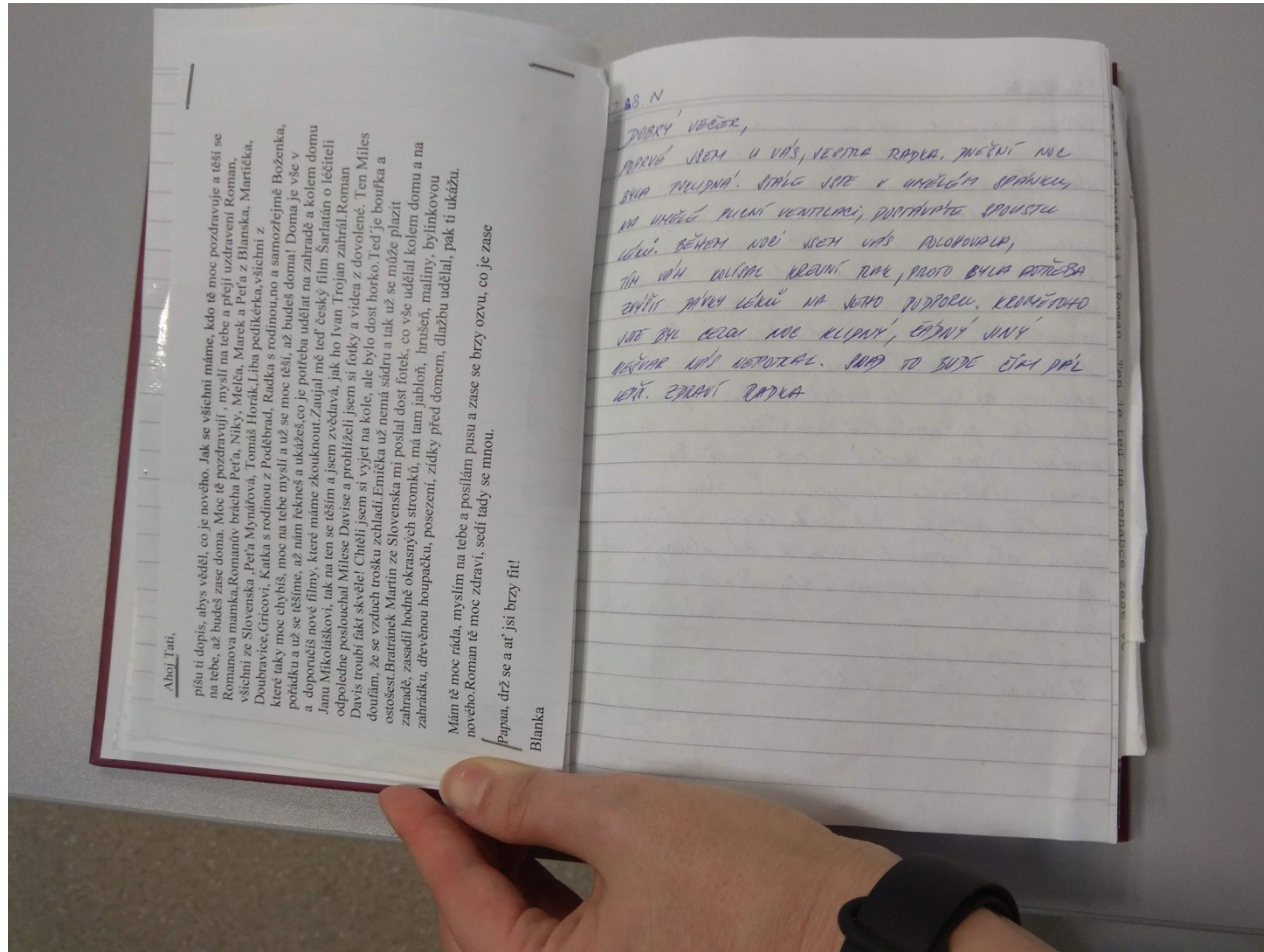 Ahoj Tati,
píšu ti dopis, abys věděl, co je nového. Jak se všichni máme, kdo tě moc pozdravuje a těší se
na tebe, až budeš zase doma. Moc tě pozdravují , myslí na tebe a přejí uzdravení Roman,
Romanova mamka,Romanův brácha Peťa, Niky, Melča, Marek a Peťa z Blanska, Martička,
všichni ze Slovenska ,Peťa Mynářová, Tomáš Horák,Liba pedikérka,všichni z
Doubravice,Gricovi, Katka s rodinou z Poděbrad, Radka s rodinou,no a samozřejmě Boženka,
které taky moc chybíš, moc na tebe myslí a už se moc těší, až budeš doma! Doma je vše v
pořádku a už se těšíme, až nám řekneš a ukážeš,co je potřeba udělat na zahradě a kolem domu
a doporučíš nové filmy, které máme zkouknout.Zaujal mě teď český film Šarlatán o léčiteli
Janu Mikoláškovi, tak na ten se těším a jsem zvědavá, jak ho Ivan Trojan zahrál.Roman
odpoledne poslouchal Milese Davise a prohlíželi jsem si fotky a videa z dovolené. Ten Miles
Davis troubí fakt skvěle! Chtěli jsem si vyjet na kole, ale bylo dost horko.Teď je bouřka a
doufám, že se vzduch trošku zchladí.Emička už nemá sádru a tak už se může plazit
ostošest.Bratránek Martin ze Slovenska mi poslal dost fotek, co vše udělal kolem domu a na
zahradě, zasadil hodně okrasných stromků, má tam jabloň, hrušeň, maliny, bylinkovou
zahrádku, dřevěnou houpačku, posezení, zídky před domem, dlažbu udělal, pak tí ukážu.
Mám tě moc ráda, myslím na tebe a posílám pusu a zase se brzy ozvu, co je zase
nového.Roman tě moc zdraví, sedí tady se mnou.
Papaa, drž se a ať jsi brzy fit!
Blanka
8 N
DOBRÝ VEČER,
POPRVÉ JSEM U VÁS, SESTRA RADKA. DNEŠNÍ NOC
BYLA POKLIDNÁ. STÁLE JSTE V UMĚLÉM SPÁNKU,
NA UMĚLÉ PLICNÍ VENTILACI, DOSTÁVÁTE SPOUSTU
LÉKŮ. BĚHEM NOCI JSEM VÁS POLOHOVALA,
TÍM VÁM KOLÍSAL KREVNÍ TLAK, PROTO BYLA POTŘEBA
ZVÝŠIT DÁVKY LÉKŮ NA JEHO PODPORU. KROMĚTOHO
JSTE BYL CELOU NOC KLIDNÝ, ŽÁDNÝ JINÝ
NEŠVAR NÁS NEPOTKAL. SNAD TO BUDE ČÍM DÁL
LEPŠÍ. ZDRAVÍ RADKA